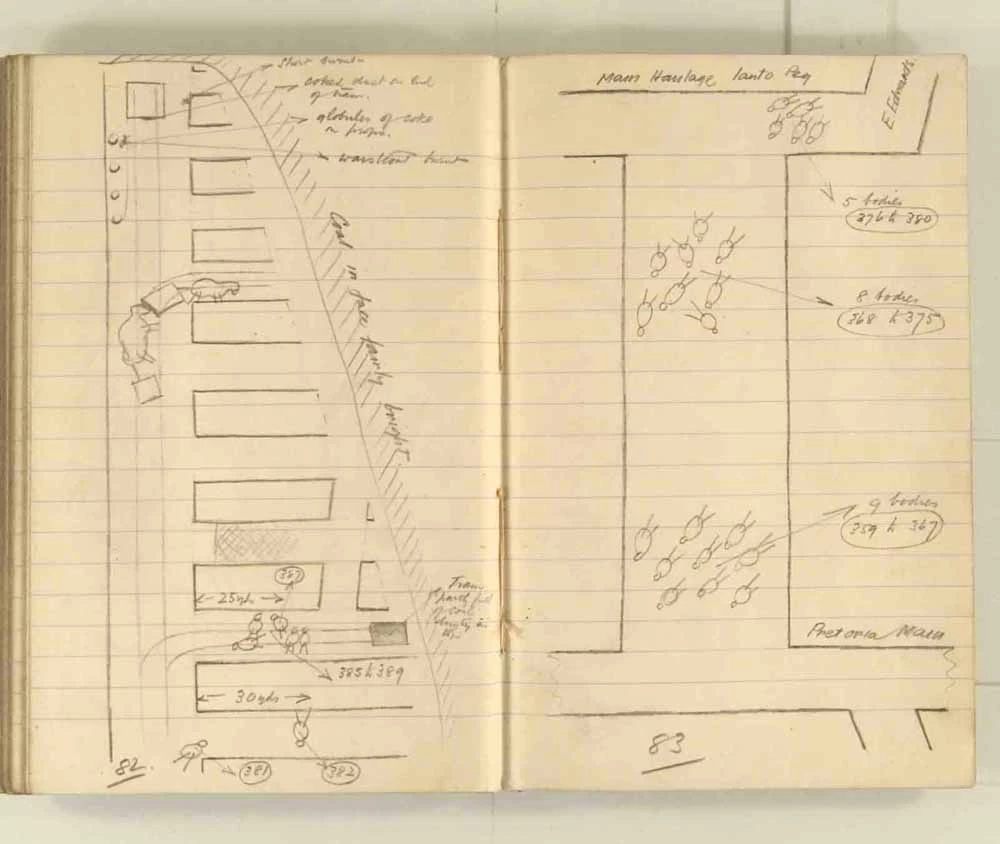 Short burnt
coked dust on end
of tram.
globules of coke
on props.
waistcoat burnt
Coal in face fairly bright.
387
25yds
Tram
of coal
385 to 389
30yds
82.
381
382
Main Haulage Ianto Peg
E. Edmunds.
5 bodies
376 to 380
8 bodies
368 to 375
9 bodies
359 to 367
Pretoria Main
83